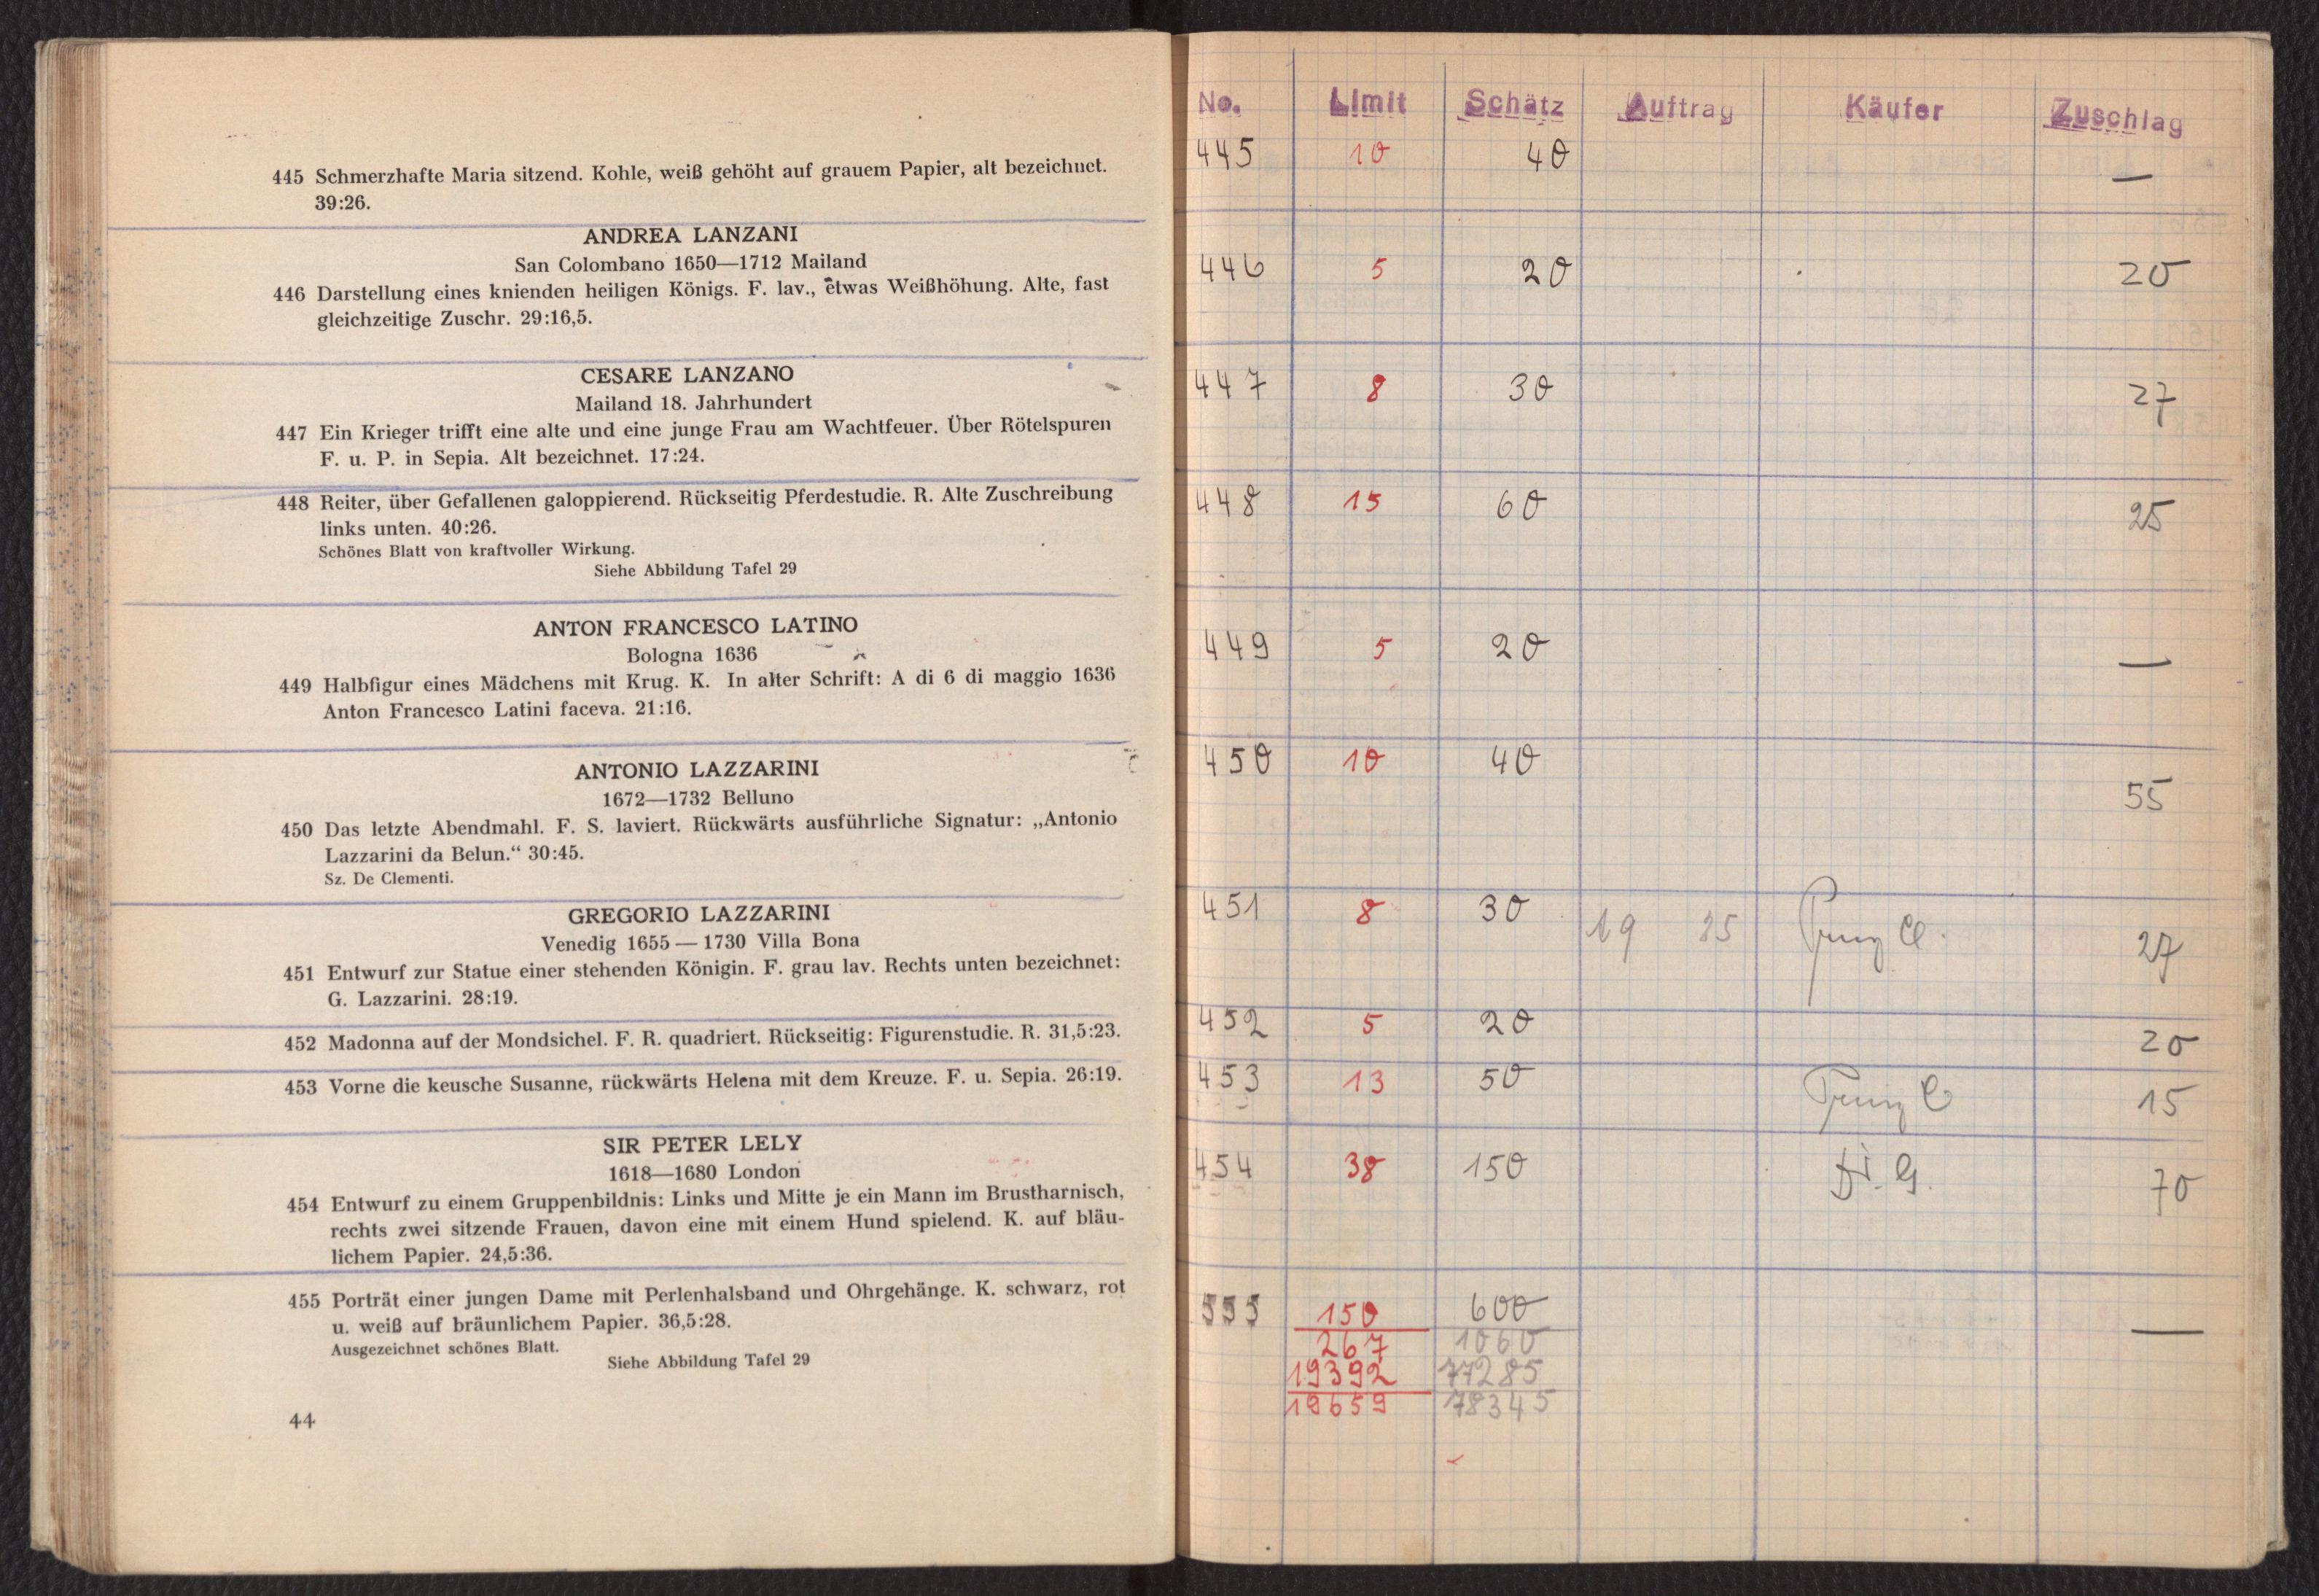 445 Schmerzhafte Maria sitzend. Kohle, weiß gehöht auf grauem Papier, alt bezeichnet.
39:26.
ANDREA LANZANI
San Colombano 1650—1712 Mailand
446 Darstellung eines knienden heiligen Königs. F. lav., etwas Weißhöhung. Alte, fast
gleichzeitige Zuschr. 29:16,5.
CESARE LANZANO
Mailand 18. Jahrhundert
447 Ein Krieger trifft eine alte und eine junge Frau am Wachtfeuer. Über Rötelspuren
F. u. P. in Sepia. Alt bezeichnet. 17:24.
448 Reiter, über Gefallenen galoppierend. Rückseitig Pferdestudie. R. Alte Zuschreibung
links unten. 40:26.
Schönes Blatt von kraftvoller Wirkung.
Siehe Abbildung Tafel 29
ANTON FRANCESCO LATINO
Bologna 1636
449 Halbfigur eines Mädchens mit Krug. K. In alter Schrift: A di 6 di maggio 1636
Anton Francesco Latini faceva. 21:16.
ANTONIO LAZZARINI
1672—1732 Belluno
450 Das letzte Abendmahl. F. S. laviert. Rückwärts ausführliche Signatur: „Antonio
Lazzarini da Belun.“ 30:45.
Sz. De Clementi.
GREGORIO LAZZARINI
Venedig 1655 — 1730 Villa Bona
451 Entwurf zur Statue einer stehenden Königin. F. grau lav. Rechts unten bezeichnet:
G. Lazzarini. 28:19.
452 Madonna auf der Mondsichel. F. R. quadriert. Rückseitig: Figurenstudie. R. 31,5:23.
453 Vorne die keusche Susanne, rückwärts Helena mit dem Kreuze. F. u. Sepia. 26:19.
SIR PETER LELY
1618—1680 London
454 Entwurf zu einem Gruppenbildnis: Links und Mitte je ein Mann im Brustharnisch,
rechts zwei sitzende Frauen, davon eine mit einem Hund spielend. K. auf bläu-
lichem Papier. 24,5:36.
455 Porträt einer jungen Dame mit Perlenhalsband und Ohrgehänge. K. schwarz, rot
u. weiß auf bräunlichem Papier. 36,5:28.
Ausgezeichnet schönes Blatt.
Siehe Abbildung Tafel 29
44
No. Limit Schätz Auftrag Käufer Zuschlag
445 10 40 —
446 5 20 20
447 8 30 27
448 15 60 25
449 5 20 —
450 10 40 55
451 8 30 19 35 27
452 5 20 20
453 13 50 15
454 38 150 70
555 150 600 —
267 1060
19392 77285
19659 78345